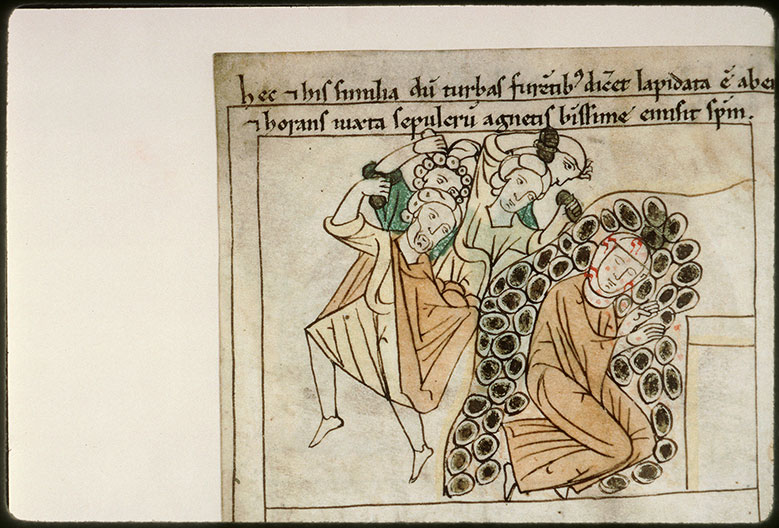 hec ⁊ his similia dũ turbas furẽtibꝰ dic̃et lapidata ẽ aben
⁊ horans iuxta sepulcrũ agnetis b̃issime emisit sp̃m.